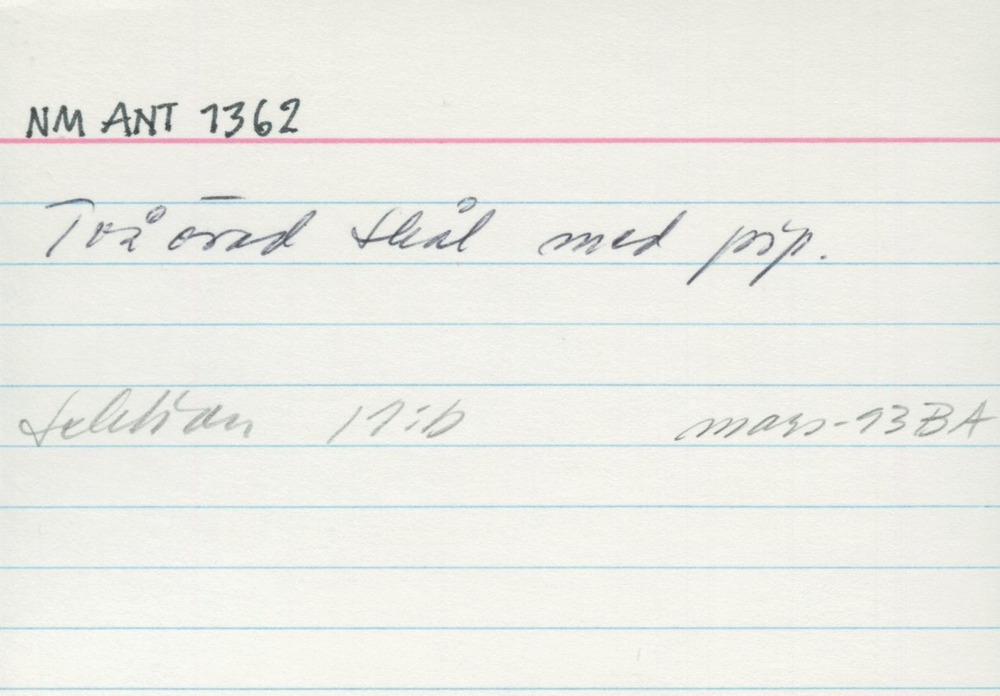 NM ANT 1362
Två örad skål med pip.
Sektion 11:b mars-93 BA